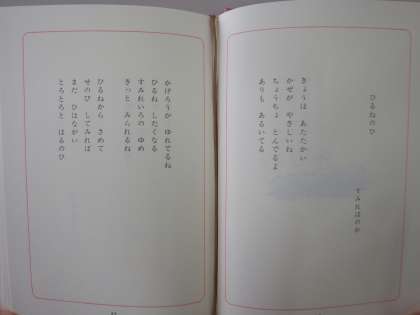 ひるねのひ
すみればのか
きょうは あたたかい
かぜが やさしいね
ちょうちょ とんでるよ
ありも あるいてる
かげろうが ゆれてるね
ひるね したくなる
すみれいろの ゆめ
きっと みられるね
ひるねから さめて
せのび してみれば
まだ ひはながい
とろとろと はるのひ